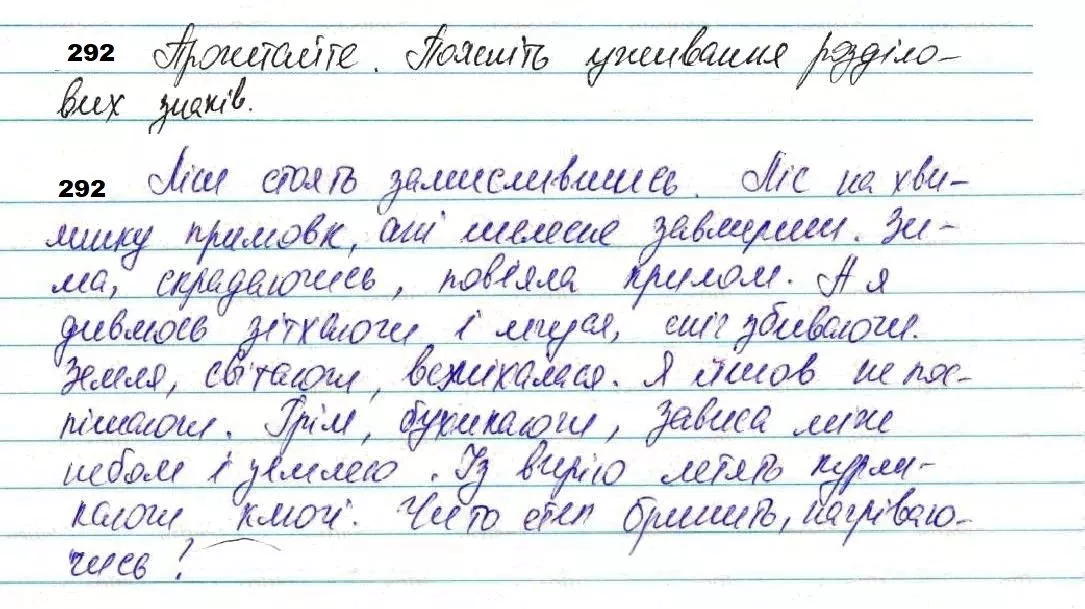 292 Прочитайте. Поясніть уживання розділо-
вих знаків.
292 Ліси стоять замислившись. Ліс на хви-
линку примовк, ані шелесне завмерши. Зи-
ма, скрадаючись, повіяла крилом. А я
дивлюсь зітхаючи і йду, сніг збиваючи.
Земля, світаючи, всміхалася. Я йшов не пос-
пішаючи. Грім, бухикаючи, зависа між
небом і землею. Із вирію летять курли-
каючи ключі. Чи то степ бринить, нагріваю-
чись?